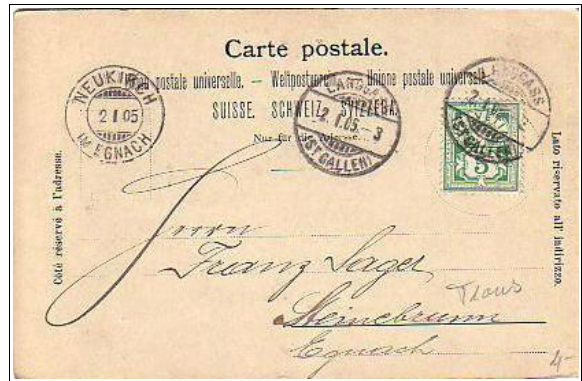 Carte postale.
postale universelle. — Weltpostverein. — Unione postale universale.
SUISSE. SCHWEIZ. SVIZZERA.
Nur für die Adresse.
NEUKIRCH
2 I 05
IM EGNACH
LANGGASS
2. I. 05. – 3
(ST GALLEN)
LANGGASS
2. I. 05.
(ST GALLEN)
5
Côté réservé à l'adresse.
Lato riservato all' indirizzo.
Herrn
Franz Sager
Steinebrunn
Egnach
4.-